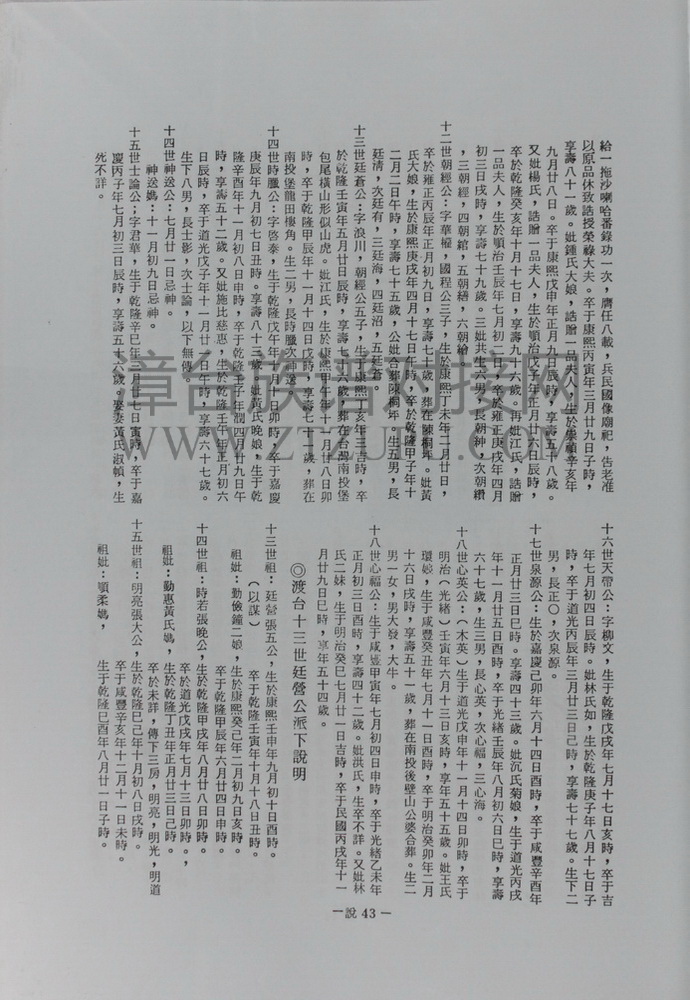 給一拖沙喇哈番錄功一次，膺任八載，兵民國像廟祀，告老准
以原品休致誥授榮祿大夫。卒于康熙丙寅年三月廿九日子時，
享壽八十一歲。妣鍾氏大娘，誥贈一品夫人，生於崇禎辛亥年
九月廿八日。卒于康熙戊申年正月九日辰時，享壽五十八歲。
又妣楊氏，誥贈一品夫人，生於順治戊子年正月廿六日辰時，
卒於乾隆癸亥年十月十七日，享壽九十六歲。再妣江氏，誥贈
一品夫人，生於順治壬辰年七月初一日，卒於雍正庚戌年四月
初三日戌時，享壽七十九歲。三妣共生六男，長朝柛，次朝纘
，三朝經，四朝綰，五朝繕，六朝給。
十二世朝經公：字華權，國程公三子，生於康熙丁未年二月廿日，
卒於雍正丙辰年正月初九日，享壽七十歲，葬在陳桐坪。妣黃
氏大娘，生於康熙庚戌年四月十七日午時，卒於乾隆甲子年十
二月二日午時，享壽七十五歲，公妣合葬陳桐坪，生五男，長
廷清，次廷有，三廷海，四廷沼，五廷蒼。
十三世廷蒼公：字浪川，朝經公五子，生于康熙丁亥年三吉時，卒
於乾隆壬寅年五月廿日辰時，享壽七十六歲，葬在台灣南投堡
包尾橫山形似山虎。妣江氏，生於康熙甲午年十一月廿八日卯
時，卒于乾隆甲辰年十一月十四日戌時，享壽七十一歲，葬在
南投堡龍田樓角。生二男，長時臘次神送
十四世時臘公：字啓泰，生于乾隆戊午年十月十日卯時，卒于嘉慶
庚辰年九月初七日丑時。享壽八十三歲。妣黃氏晚娘，生于乾
隆辛酉年十一月初八日申時，卒于乾隆壬子年潤四月廿九日午
時，享壽五十二歲。又妣施比慈惠，生於乾隆壬午年正月初六
日辰時，卒于道光戊子年十一月廿一日午時，享壽六十七歲。
生下八男，長士影，次士論，以下無傳。
十四世神送公：七月廿一日忌神。
神送媽：十一月初九日忌神。
十五世士論公：字君華，生于乾隆辛巳年三月廿七日寅時，卒于嘉
慶丙子年七月初三日辰時，享壽五十六歲，娶妻黃氏淑幀，生
死不詳。
十六世天帶公：字柳文，生于乾隆戊戌年七月十七日亥時，卒于吉
年七月初四日辰時。妣林氏如，生於乾隆庚子年八月十七日子
時，卒于道光丙辰年三月廿三日己時，享壽七十七歲。生下二
男，長正〇，次泉源。
十七世泉源公：生於嘉慶己卯年六月十四日酉時，卒于咸豐辛酉年
正月廿三日巳時。享壽四十三歲。妣沉氏菊娘，生于道光丙戌
年十一月廿五日酉時，卒于光緒壬辰年八月初六日巳時，享壽
六十七歲，生三男，長心英，次心福，三心海。
十八世心英公：（木英）生于道光戊申年十一月十四日卯時，卒于
明治（光緒）壬寅年六月十三日亥時，享年五十五歲。妣王氏
環娘，生于咸豐癸丑年七月十一日酉時，卒于明治癸卯年二月
十六日戌時，享壽五十一歲，葬在南投後壁山公婆合葬。生二
男一女，男大發，大牛。
十八世心福公：生于咸豐甲寅年七月初四日申時，卒于光緒乙未年
正月初三日酉時，享壽四十二歲。妣洪氏，生卒不詳。又妣林
氏二妹，生于明治癸巳七月廿一日吉時，卒于民國丙戌年十一
月廿九日巳時，享年五十四歲。
◎渡台十三世廷營公派下說明
十三世祖：廷營張五公，生於康熙壬申年九月初十日酉時。
（以謀）　卒于乾隆壬寅年十月十八日丑時。
祖妣：勤儉鐘二娘，生於康熙癸己年二月初九日亥時。
卒于乾隆甲辰年六月廿四日申時。
十四世祖：時若張晚公，生於乾隆甲戌年八月廿八日卯時。
卒於道光戊戌年七月十三日卯時。
祖妣：勤惠黃氏媽，生於乾隆丁丑年正月廿三日己時。
卒於未詳，傳下三房，明亮，明光，明道
十五世祖：明亮張大公，生于乾隆巳年十月初八日戌時。
卒于咸豐辛亥年十二月十一日未時。
祖妣：順柔媽，　生于乾隆巳酉年八月廿一日子時。
—說 43—
章台族譜對接网
www.ztzupu.com